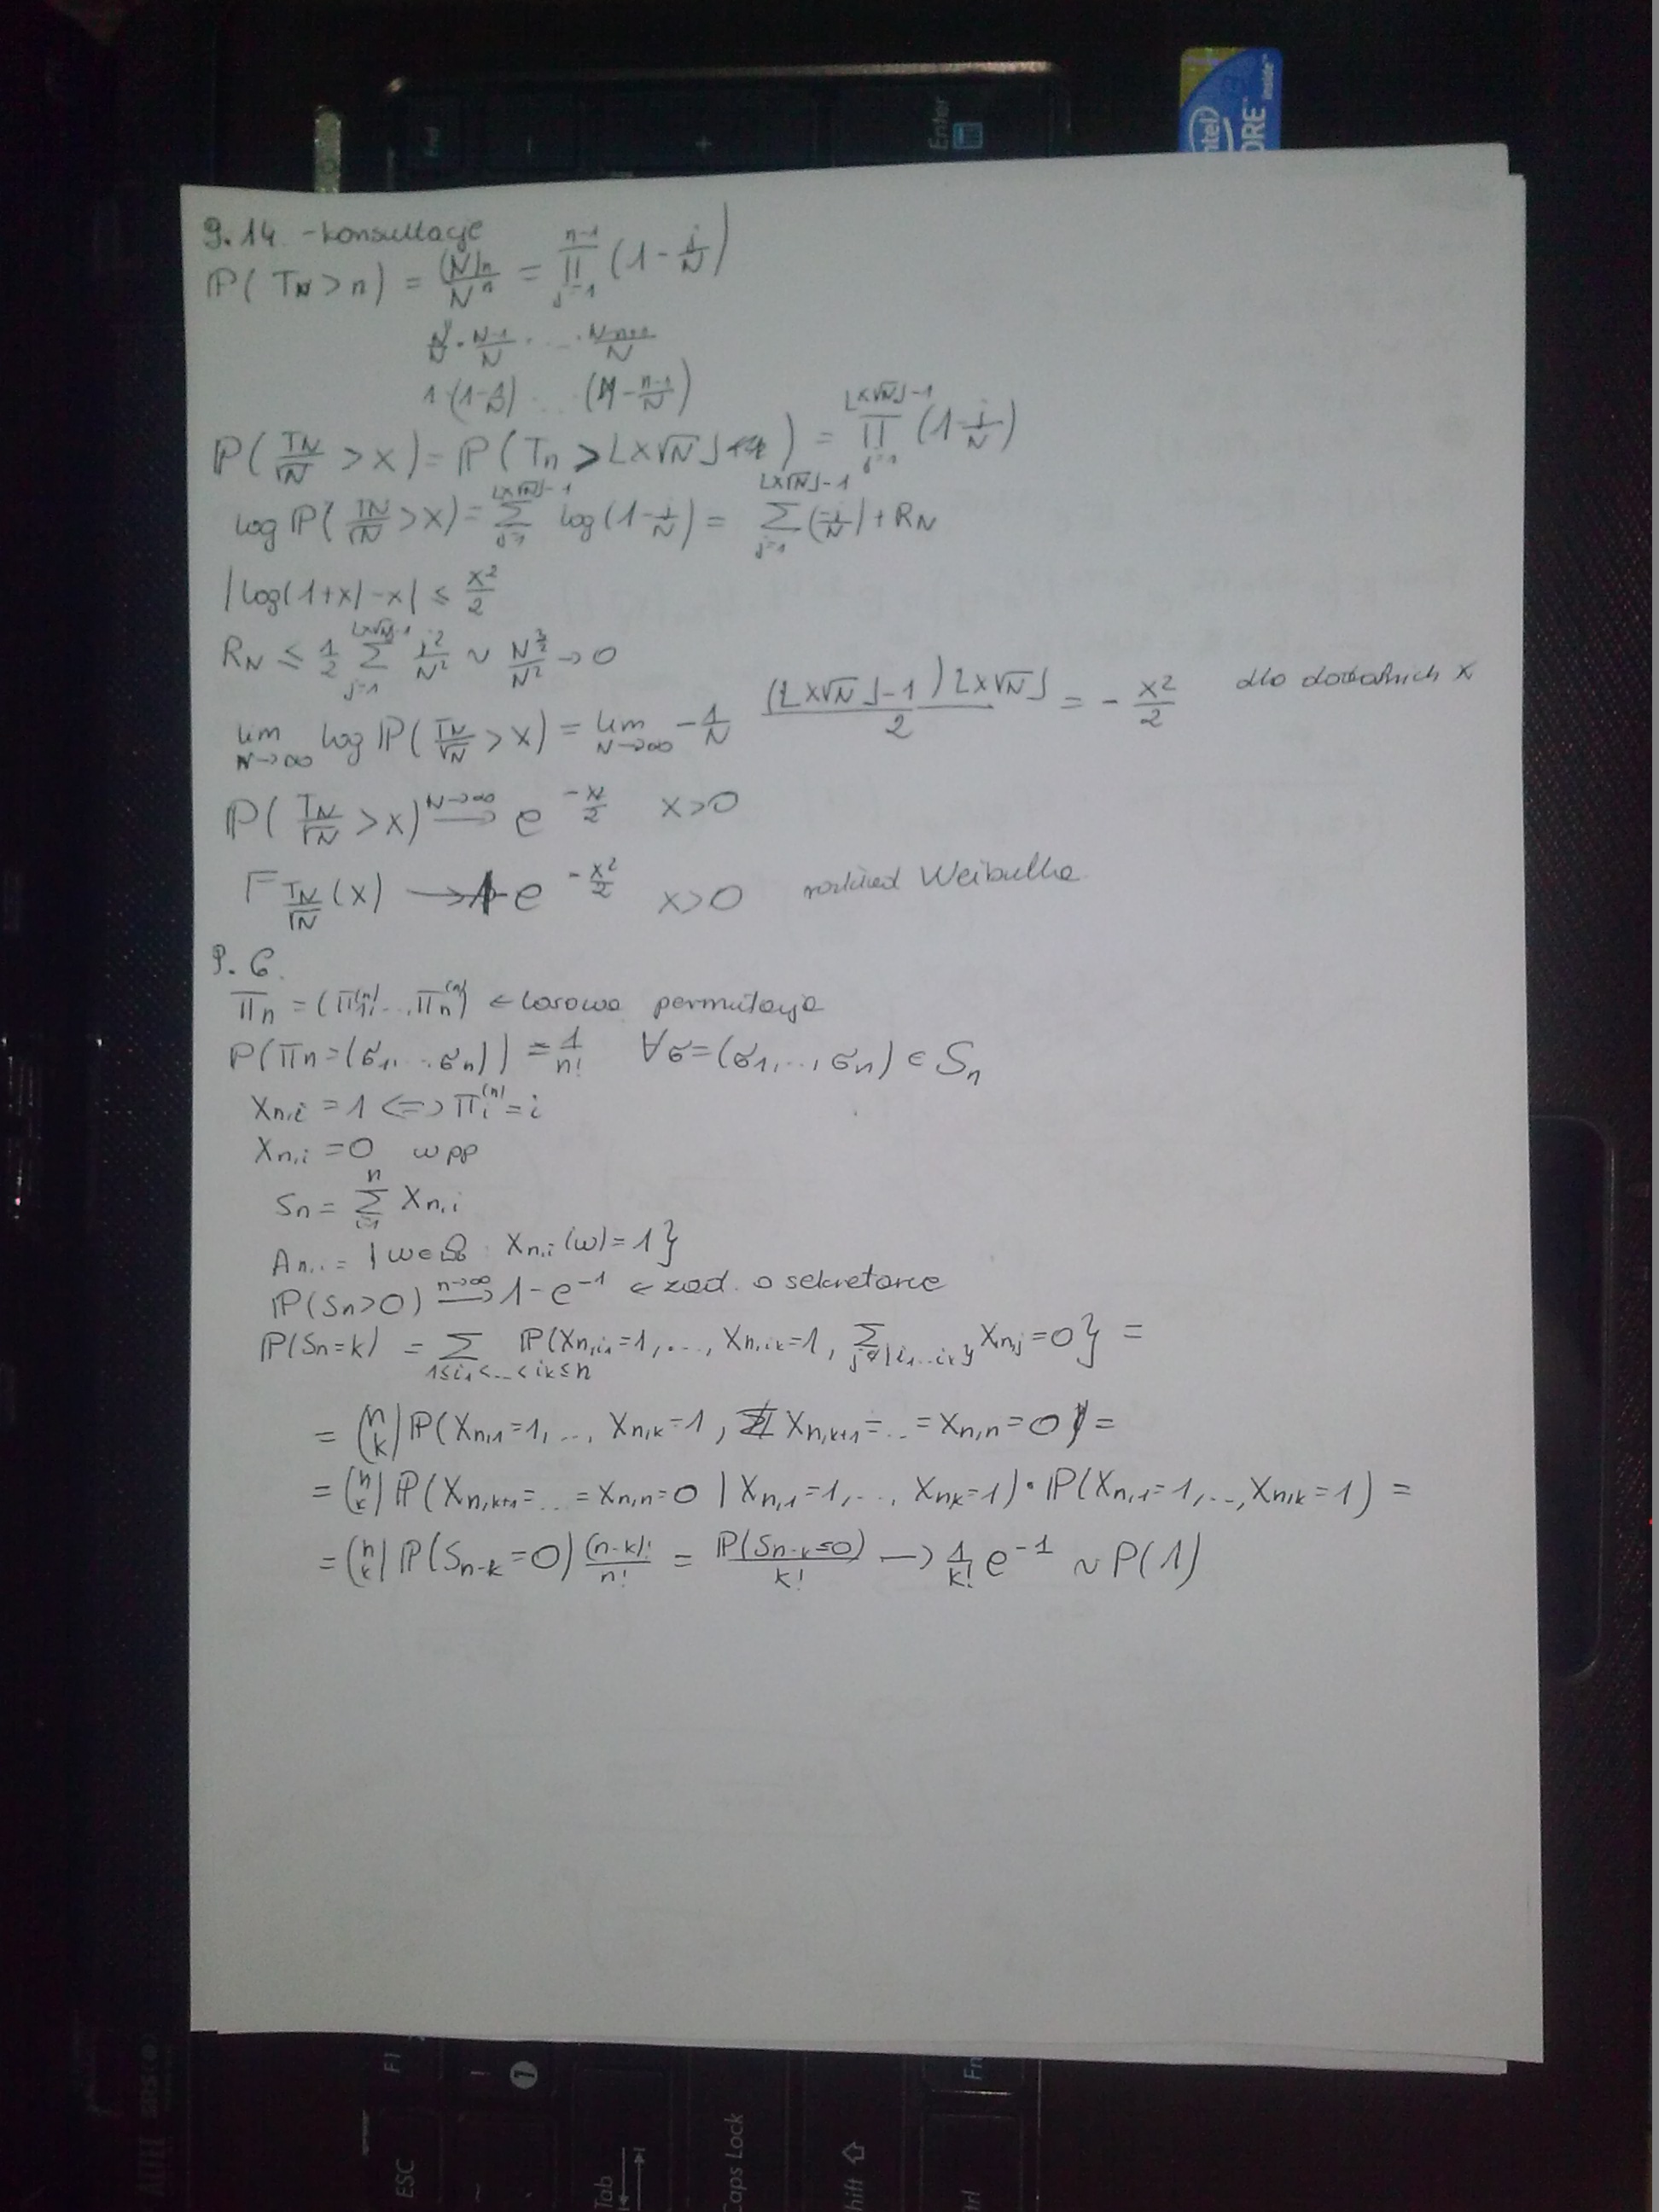 End
-
+
Enter
intel
CORE
inside™
9.14. - konsultacje
ℙ(T_N > n) = (N)_n / N^n = ∏_{j=1}^{n-1} (1 - j/N)
N/N · (N-1)/N · ... · (N-n+1)/N
1 · (1-1/N) ... (1 - (n-1)/N)
ℙ(T_N/√N > x) = ℙ(T_n > ⌊x√N⌋) = ∏_{j=1}^{⌊x√N⌋-1} (1 - j/N)
log ℙ(T_N/√N > x) = ∑_{j=1}^{⌊x√N⌋-1} log(1 - j/N) = ∑_{j=1}^{⌊x√N⌋-1} (-j/N) + R_N
|log(1+x) - x| ≤ x²/2
R_N ≤ 1/2 ∑_{j=1}^{⌊x√N⌋-1} j²/N² ~ N^{3/2}/N² → 0
lim_{N→∞} log ℙ(T_N/√N > x) = lim_{N→∞} -1/N (⌊x√N⌋-1)⌊x√N⌋/2 = -x²/2 dla dodatnich x
ℙ(T_N/√N > x) →^{N→∞} e^{-x²/2} x>0
F_{T_N/√N}(x) → 1-e^{-x²/2} x>0 rozkład Weibulla
9.6.
Π_n = (Π_1^{(n)}, ..., Π_n^{(n)}) ← losowa permutacja
P(Π_n = (σ_1, ..., σ_n)) = 1/n! ∀σ=(σ_1, ..., σ_n) ∈ S_n
X_{n,i} = 1 ⇔ Π_i^{(n)} = i
X_{n,i} = 0 wpp
S_n = ∑_{i=1}^{n} X_{n,i}
A_{n,i} = {ω∈Ω : X_{n,i}(ω) = 1}
ℙ(S_n>0) →^{n→∞} 1 - e^{-1} ← zad. o sekretarce
ℙ(S_n=k) = ∑_{1≤i_1<...<i_k≤n} ℙ(X_{n,i_1}=1, ..., X_{n,i_k}=1, ∑_{j∉{i_1...i_k}} X_{n,j}=0} =
= (n k) ℙ(X_{n,1}=1, ..., X_{n,k}=1, X_{n,k+1}=...=X_{n,n}=0) =
= (n k) ℙ(X_{n,k+1}=...=X_{n,n}=0 | X_{n,1}=1, ..., X_{n,k}=1) · ℙ(X_{n,1}=1, ..., X_{n,k}=1) =
= (n k) ℙ(S_{n-k}=0) (n-k)!/n! = ℙ(S_{n-k}=0)/k! → 1/k! e^{-1} ~ P(1)
F1
!
1
Fn
ESC
~
Tab
Caps Lock
Shift
Ctrl